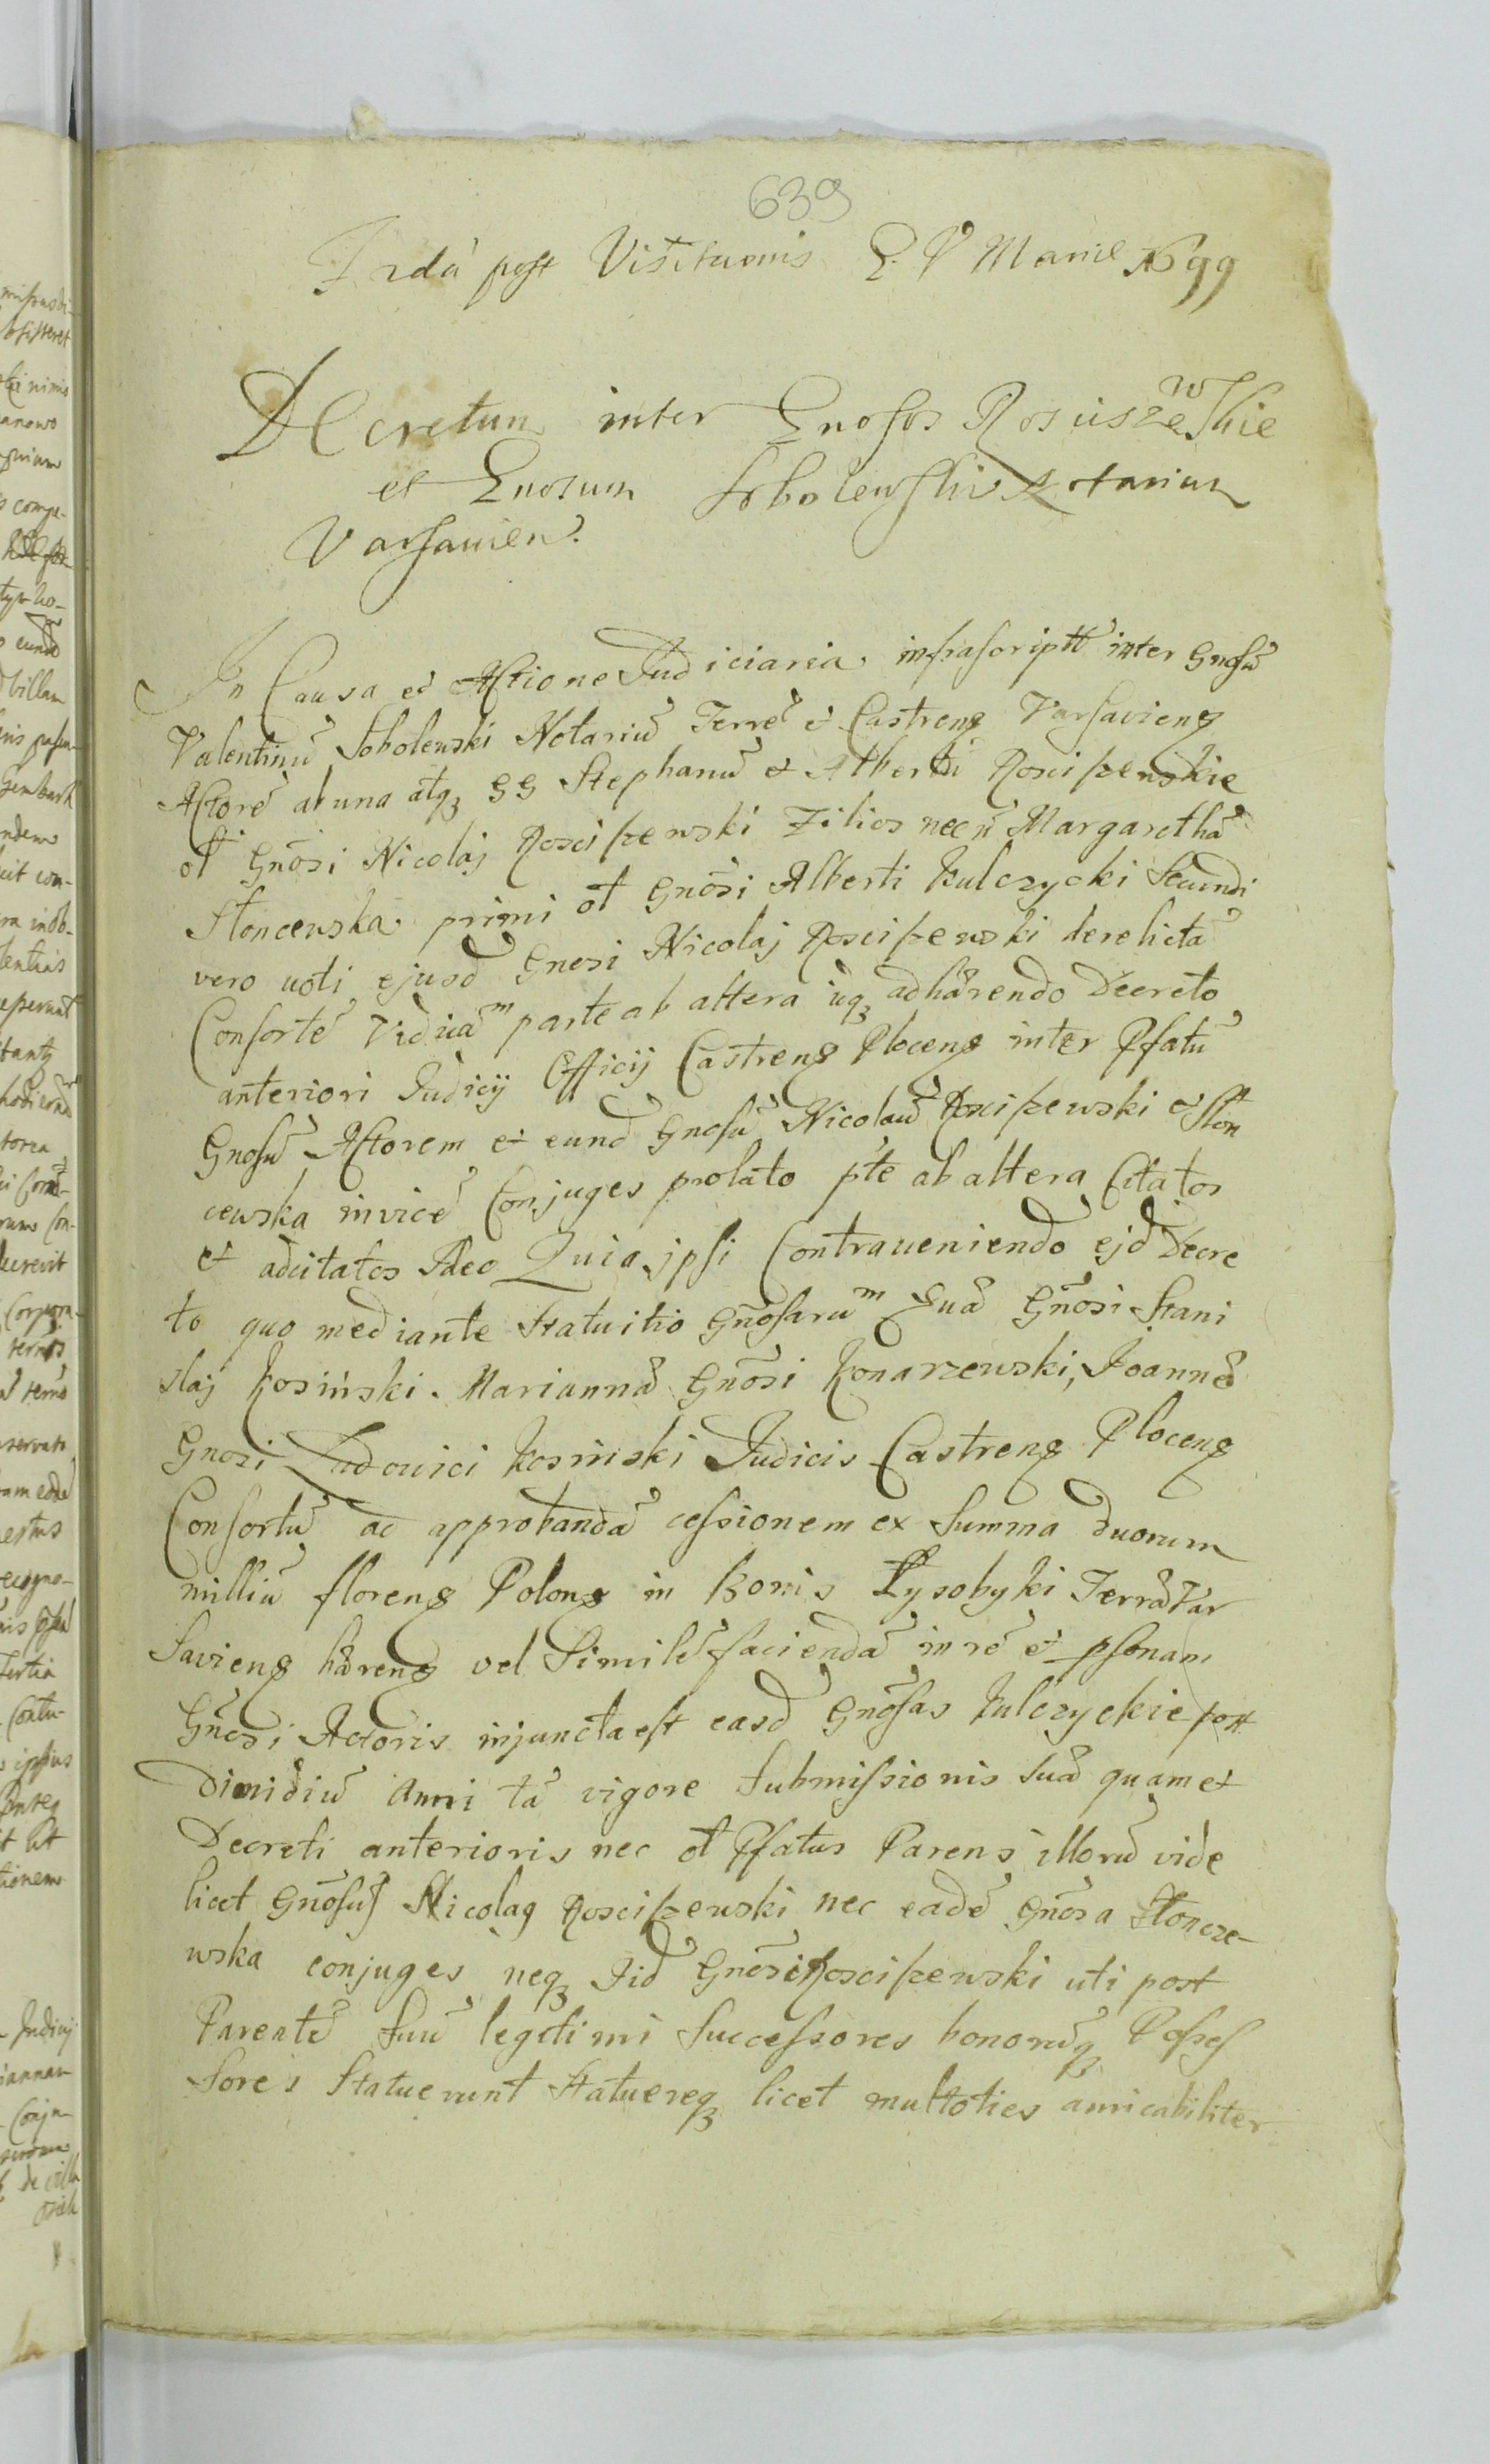 639
post Visituonis B. V Mariæ 1699
Decretum inter Gnosos Rosciszewskie
et Gnosum Sobolewski Notarium
Varsavien.
In Causa et Actione Judiciaria infrascriptt inter Gnosũ
Valentinũ Sobolewski Notariũ Terrē et Castreng Varsavieng
Actorē ab una atqꝫ GG Stephanũ et Alberti Rosciszewskie
ol Gnõsi Nicolaj Rosciszewski Filios necñ Margarethã
Stoncewska primi ol Gnõsi Alberti Kulczycki Secundi
vero uoti ejusd Gnosi Nicolaj Rosciszewski derelictã
Consortē Viduãm parte ab altera iñqꝫ adhærendo Decreto
anteriori Judicij Officij Castreng Ploceng inter Pfatũ
Gnosũ Actorem et eund Gnosũ Nicolaũ Rosciszewski et Ston
cewska invicē Conjuges prolato pte ab altera Citatos
et adcitatos Ideo Quia ipsi Contraueniendo ejd Decre
to quo mediante Statuitio Gnõsarũm Euã Gnõsi Stani
slaj Kosiński. Mariannã Gnõsi Konarzewski, Joannæ
Gnosi Ludovici Kosiński Judicis Castreng Ploceng
Consortũ ad approbandã cessionem ex Summa duorum
milliũ floreng Polong in Bonis Łysobyki Terrã Var
savieng hæreng vel Similē faciendã in rē et psonam
Gnõsi Actoris injuncta est easd Gnõsas Kulczyckie post
Dimidiũ Anni tã vigore Submissionis Suã quam et
Decreti anterioris nec ol Pfatus Parens illorũ vide
licet Gnõsus Nicolaꝯ Rosciszewski nec eadē Gnõsa Stoncze-
wska conjuges neqꝫ Iid Gnõsi Rosciszewski uti post
Parentē Suũ legitimi Successores bonorũqꝫ Posses
sores Statuerunt Statuereqꝫ licet multoties amicabiliter